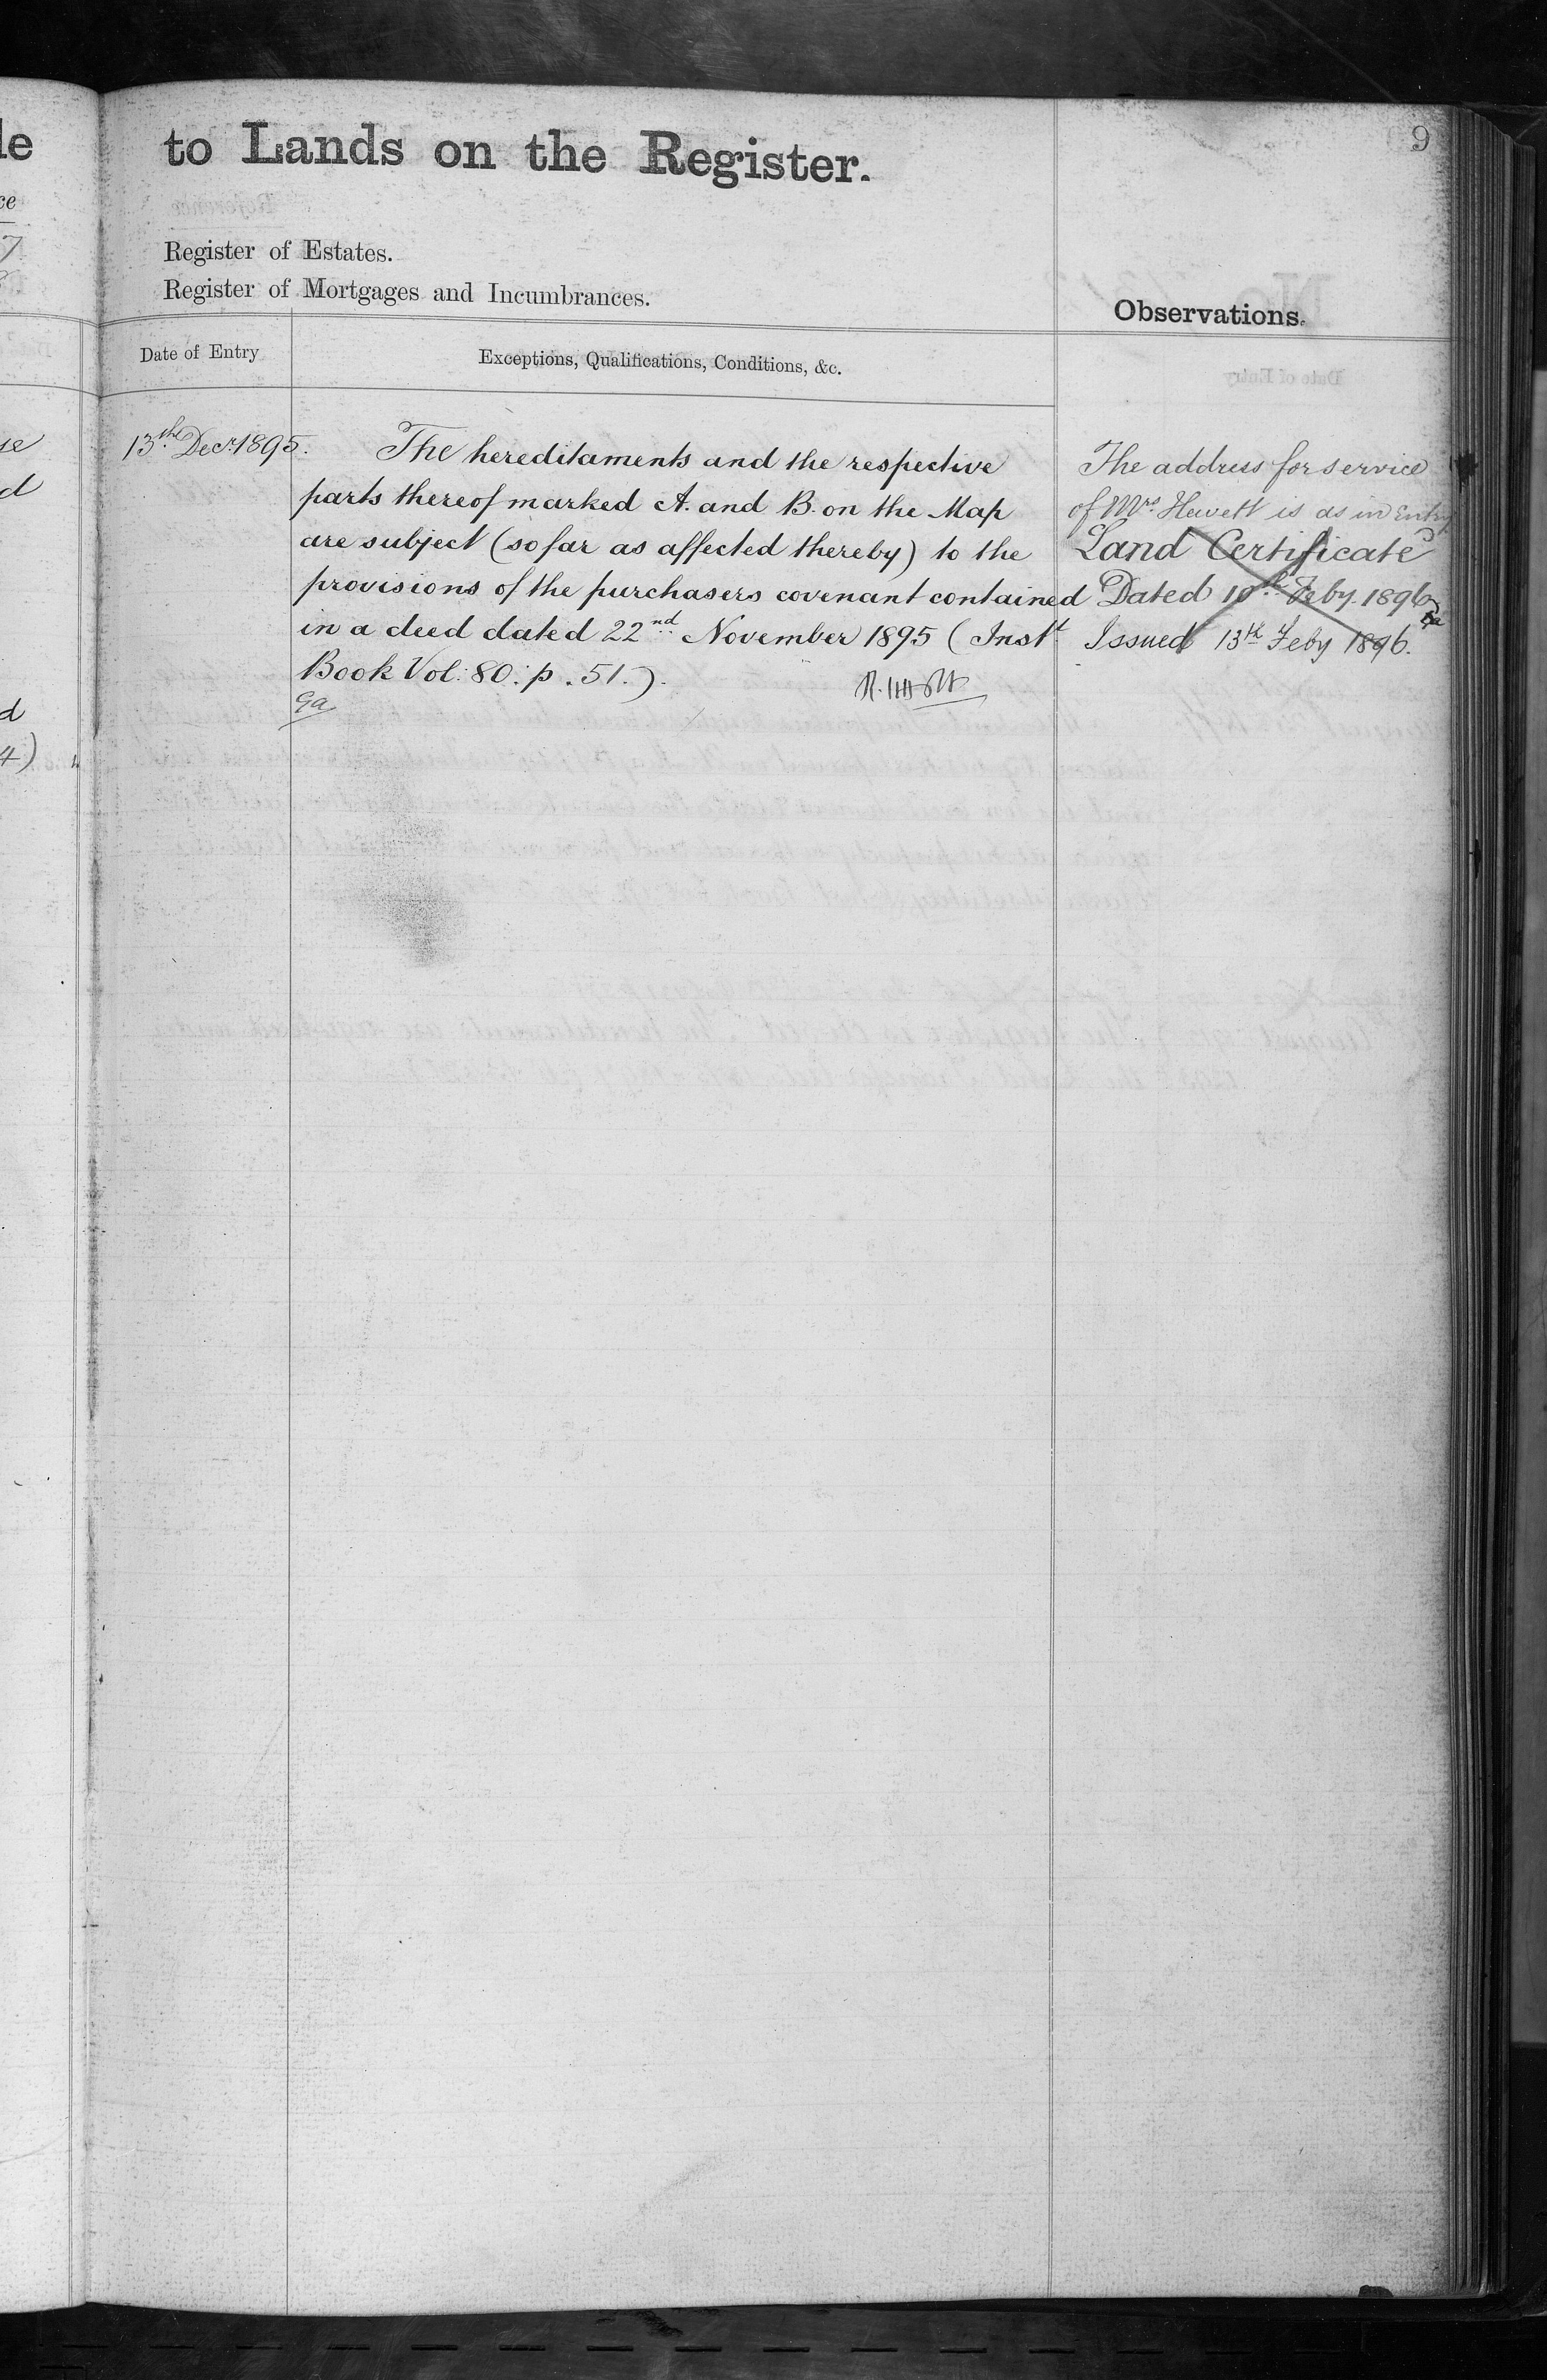 9
to Lands on the Register.
Register of Estates.
Register of Mortgages and Incumbrances.
Observations.
Date of Entry
Exceptions, Qualifications, Conditions, &c.
13th Decr. 1895.
The hereditaments and the respective
parts thereof marked A. and B. on the Map
are subject (so far as affected thereby) to the
provisions of the purchasers covenant contained
in a deed dated 22nd November 1895 (Instt
Book Vol: 80: p. 51.).
The address for service
of Mrs. Hewett is as in Entry
Land Certificate
Dated 10th Feby. 1896
Issued 13th Feby 1896.